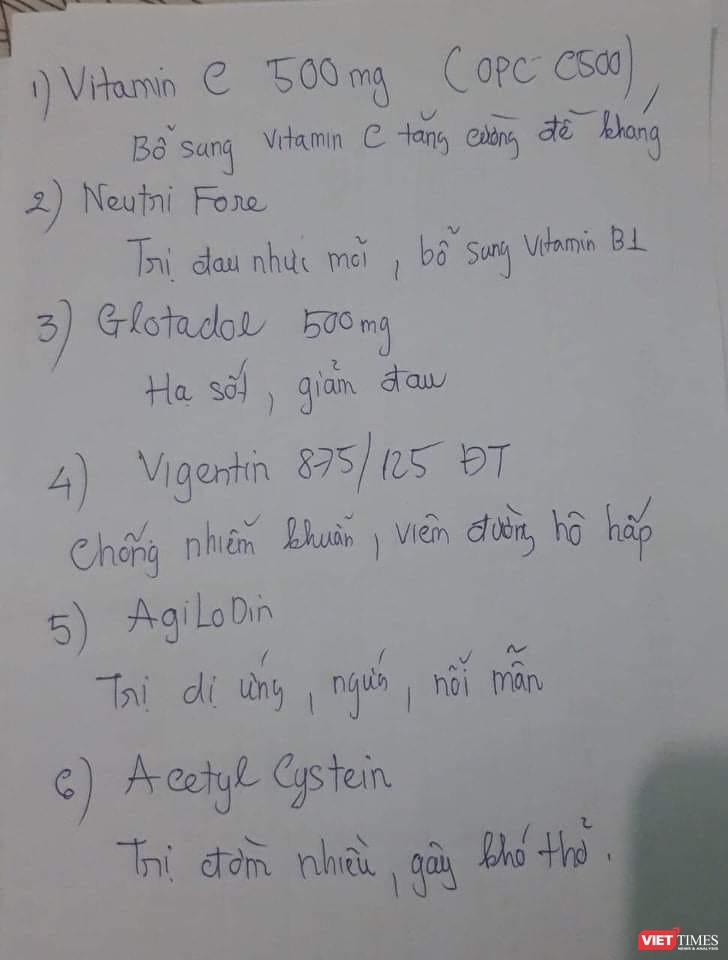 1) Vitamin C 500mg (OPC C500),
Bổ sung vitamin C tăng cường đề kháng
2) Neutri Fore
Trị đau nhức mỏi, bổ sung vitamin B1
3) Glotadol 500mg
Hạ sốt, giảm đau
4) Vigentin 875/125 ĐT
Chống nhiễm khuẩn, viêm đường hô hấp
5) AgiLoDin
Trị dị ứng, ngứa, nổi mẫn
6) Acetyl Cystein
Trị đờm nhiều, gây khó thở.
VIETTIMES
NEWS & ANALYSIS